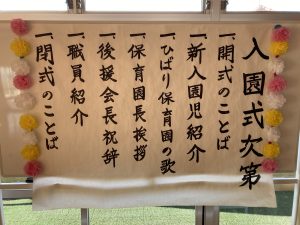 入園式次第
一、開式のことば
一、新入園児紹介
一、ひばり保育園の歌
一、保育園長挨拶
一、後援会長祝辞
一、職員紹介
一、閉式のことば